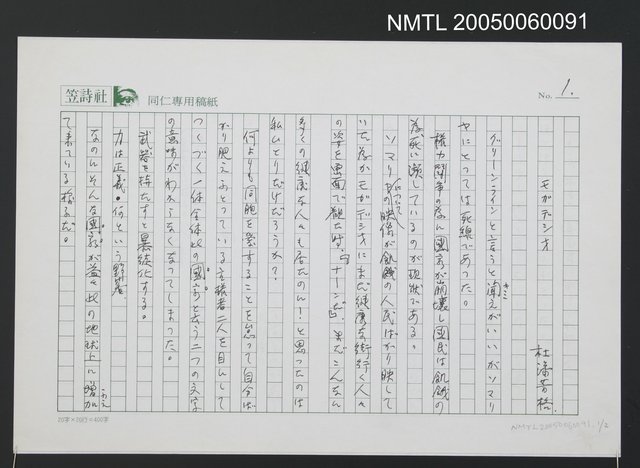 NMTL 20050060091
笠詩社 同仁専用稿紙
No. 1.
モガデシオ
杜潘芳格
グリーン・ラインと言うと聞え(キコ)がいいがソマリ
ヤにとっては死線であった。
権力闘争の為に國家が崩壊し國民は飢餓の
為死に瀕しているのが現状である。
ソマリヤの映像が飢餓の人民ばかり映して
いた為かモガデシオにまだ健康な街行く人々
の姿を畫面で観た時、「ナーンだ!まだこんなに
多くの健康な人々も居たのに!」と思ったのは
私ひとりだけだろうか?
何よりも同胞を愛することを怠って自分ば
かり肥えふとっている主権者二人を目にして
つくづく一体全体此の國家と云う二つの文字
の意味がわからなくなってしまった。
武器を持たすと暴徒化する。
力は正義。何という野蛮
なのにそんな國家が益々此の地球上に増加(ふえ)
て来ている様だ。
20字×20行=400字
NMTL20050060091 1/2